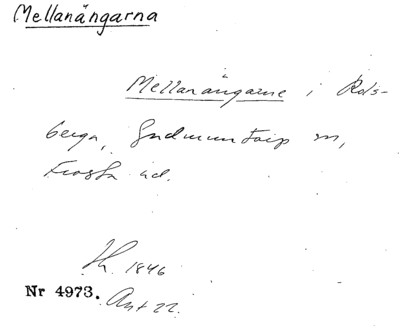 Mellanängarna
Mellanängarne i Rols-
berga, Gudmuntorp sn,
Frosta hd.
1846
Nr 4973.
Ant 22.